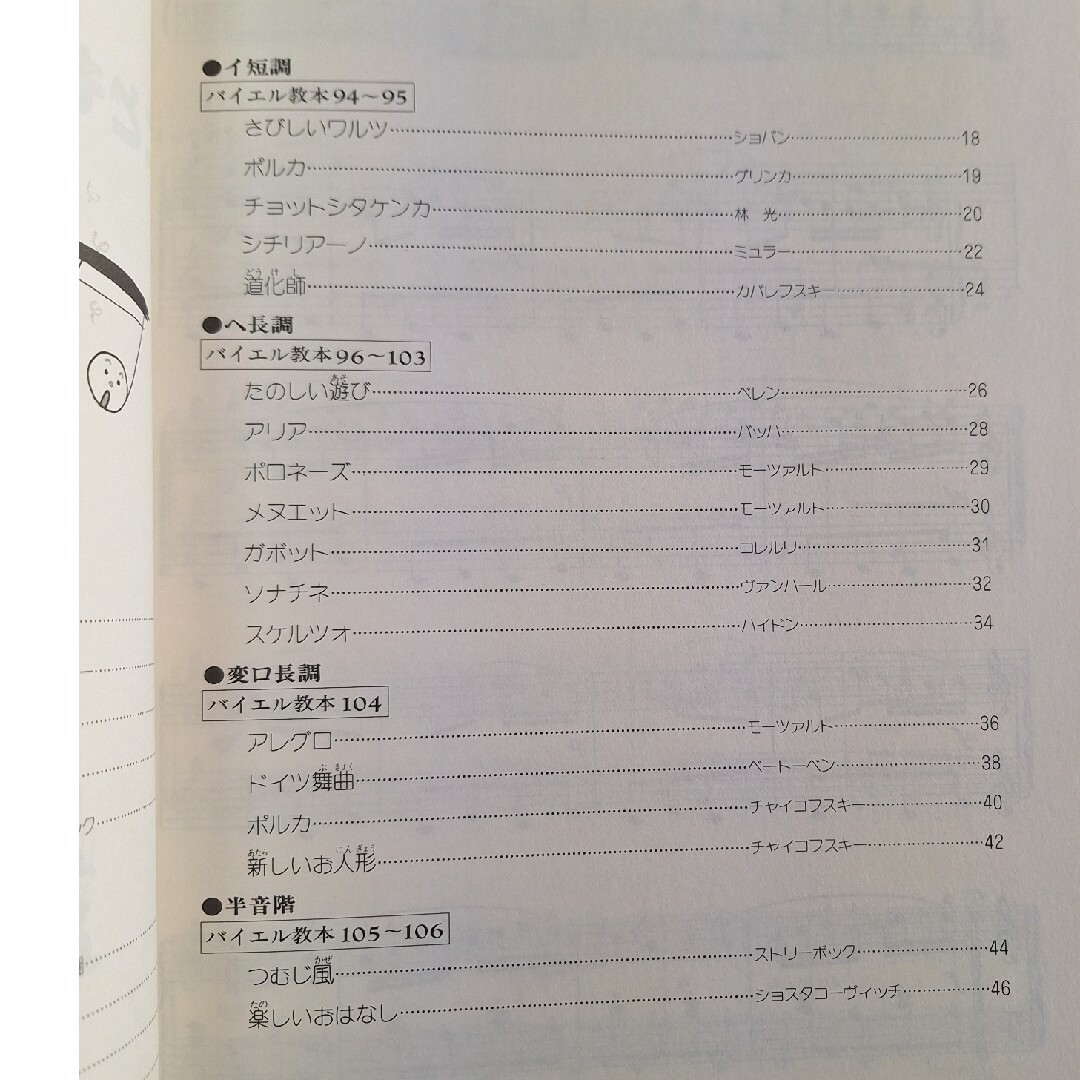 ●イ短調
バイエル教本94〜95
さびしいワルツ……ショパン……18
ポルカ……グリンカ……19
チョットシタケンカ……林 光……20
シチリアーノ……ミュラー……22
道化師……カバレフスキー……24
●ヘ長調
バイエル教本96〜103
たのしい遊び……ベレン……26
アリア……バッハ……28
ポロネーズ……モーツァルト……29
メヌエット……モーツァルト……30
ガボット……コレルリ……31
ソナチネ……ヴァンハール……32
スケルツォ……ハイドン……34
●変ロ長調
バイエル教本104
アレグロ……モーツァルト……36
ドイツ舞曲……ベートーベン……38
ポルカ……チャイコフスキー……40
新しいお人形……チャイコフスキー……42
●半音階
バイエル教本105〜106
つむじ風……ストリーボック……44
楽しいおはなし……ショスタコーヴィッチ……46